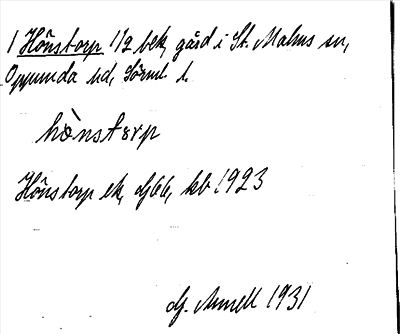 1 Hönstorp 1/2 bek, gård i St. Malms sn,
Oppunda hd, Sörml. l.
hò̀nstorp
Hönstorp ek, dj66, kb 1923
dj. Amell 1931